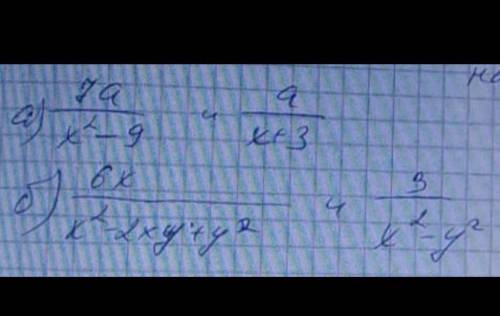 а) 7a/(x²-9) и a/(x+3)
б) 6x/(x²-2xy+y²) и 3/(x²-y²)